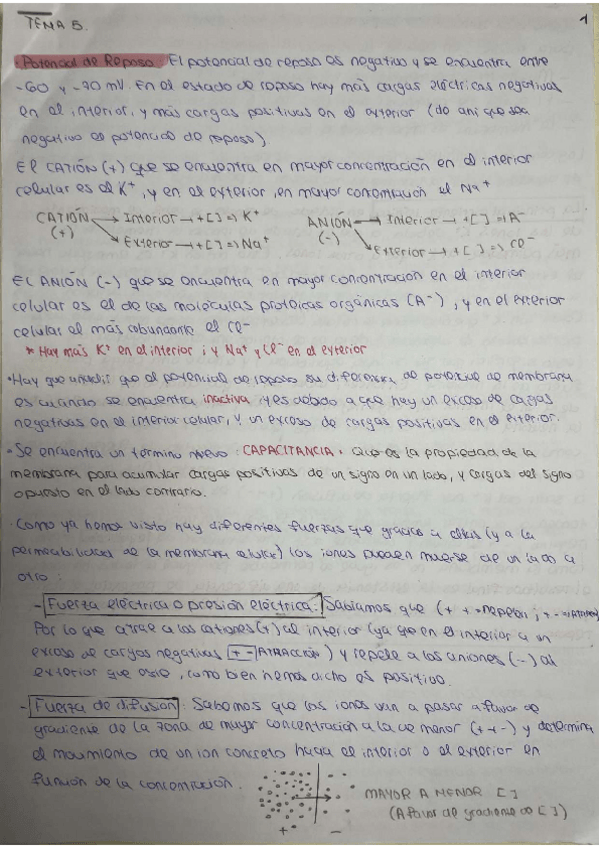 TEMA 5.
1
· Potencial de Reposo: El potencial de reposo es negativo y se encuentra entre
-60 y -90 mV. En el estado de reposo hay más cargas eléctricas negativas
en el interior, y más cargas positivas en el exterior (de ahí que sea
negativo el potencial de reposo).
El CATIÓN (+) que se encuentra en mayor concentración en el interior
celular es el K+, y en el exterior, en mayor concentración el Na+
CATIÓN (+) → Interior → + [ ] => K+
→ Exterior → + [ ] => Na+
ANIÓN (-) → Interior → + [ ] => A-
→ Exterior → + [ ] => Cl-
EL ANIÓN (-) que se encuentra en mayor concentración en el interior
celular es el de las moléculas proteicas orgánicas (A-), y en el exterior
celular el más abundante el Cl-
* Hay más K+ en el interior; y Na+ y Cl- en el exterior
· Hay que añadir que el potencial de reposo su diferencia de potencial de membrana
es cuando se encuentra inactiva y es debido a que hay un exceso de cargas
negativas en el interior celular, y un exceso de cargas positivas en el exterior.
· Se encuentra un término nuevo: CAPACITANCIA. Que es la propiedad de la
membrana para acumular cargas positivas de un signo en un lado, y cargas del signo
opuesto en el lado contrario.
· Como ya hemos visto hay diferentes fuerzas que gracias a ellas (y a la
permeabilidad de la membrana celular) los iones pueden moverse de un lado a
otro:
- Fuerza eléctrica o presión eléctrica: Sabíamos que (+ + => repelen; + - =>
Por lo que atrae a los cationes (+) al interior (ya que en el interior a un
exceso de cargas negativas + - ATRACCIÓN) y repele a los aniones (-) al
exterior que como bien hemos dicho es positivo.
- Fuerza de difusión: Sabemos que los iones van a pasar a favor de
gradiente de la zona de mayor concentración a la de menor (+ → -) y determina
el movimiento de un ion concreto hacia el interior o el exterior en
función de la concentración.
MAYOR A MENOR [ ]
(A favor de gradiente de [ ])
+ -